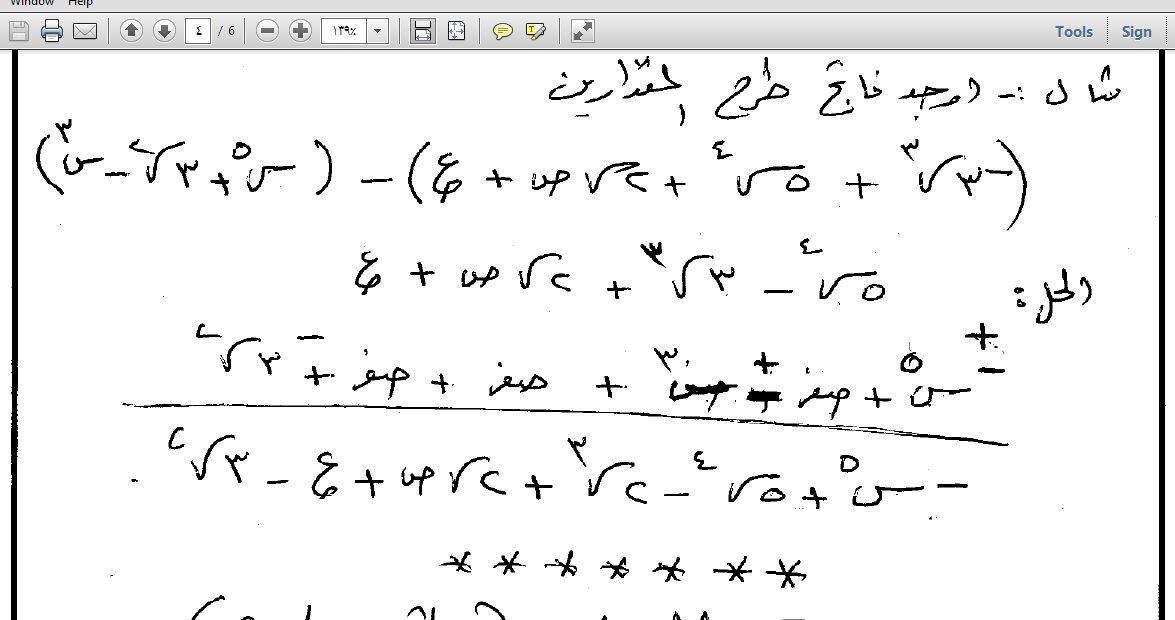 Window Help
٤ / 6 ١٣٩٪ Tools Sign
مثال :- اوجد ناتج طرح المقدارين
(-٣س^٣ + ٥س^٤ + ٢س ص + ع) - (س^٥ + ٣س^٢ - س^٣)
الحل: ٥س^٤ - ٣س^٣ + ٢س ص + ع
س^٥ + صفر + س^٣ + صفر + صفر + ٣س^٢
- س^٥ + ٥س^٤ - ٢س^٣ + ٢س ص + ع - ٣س^٢
* * * * * * *